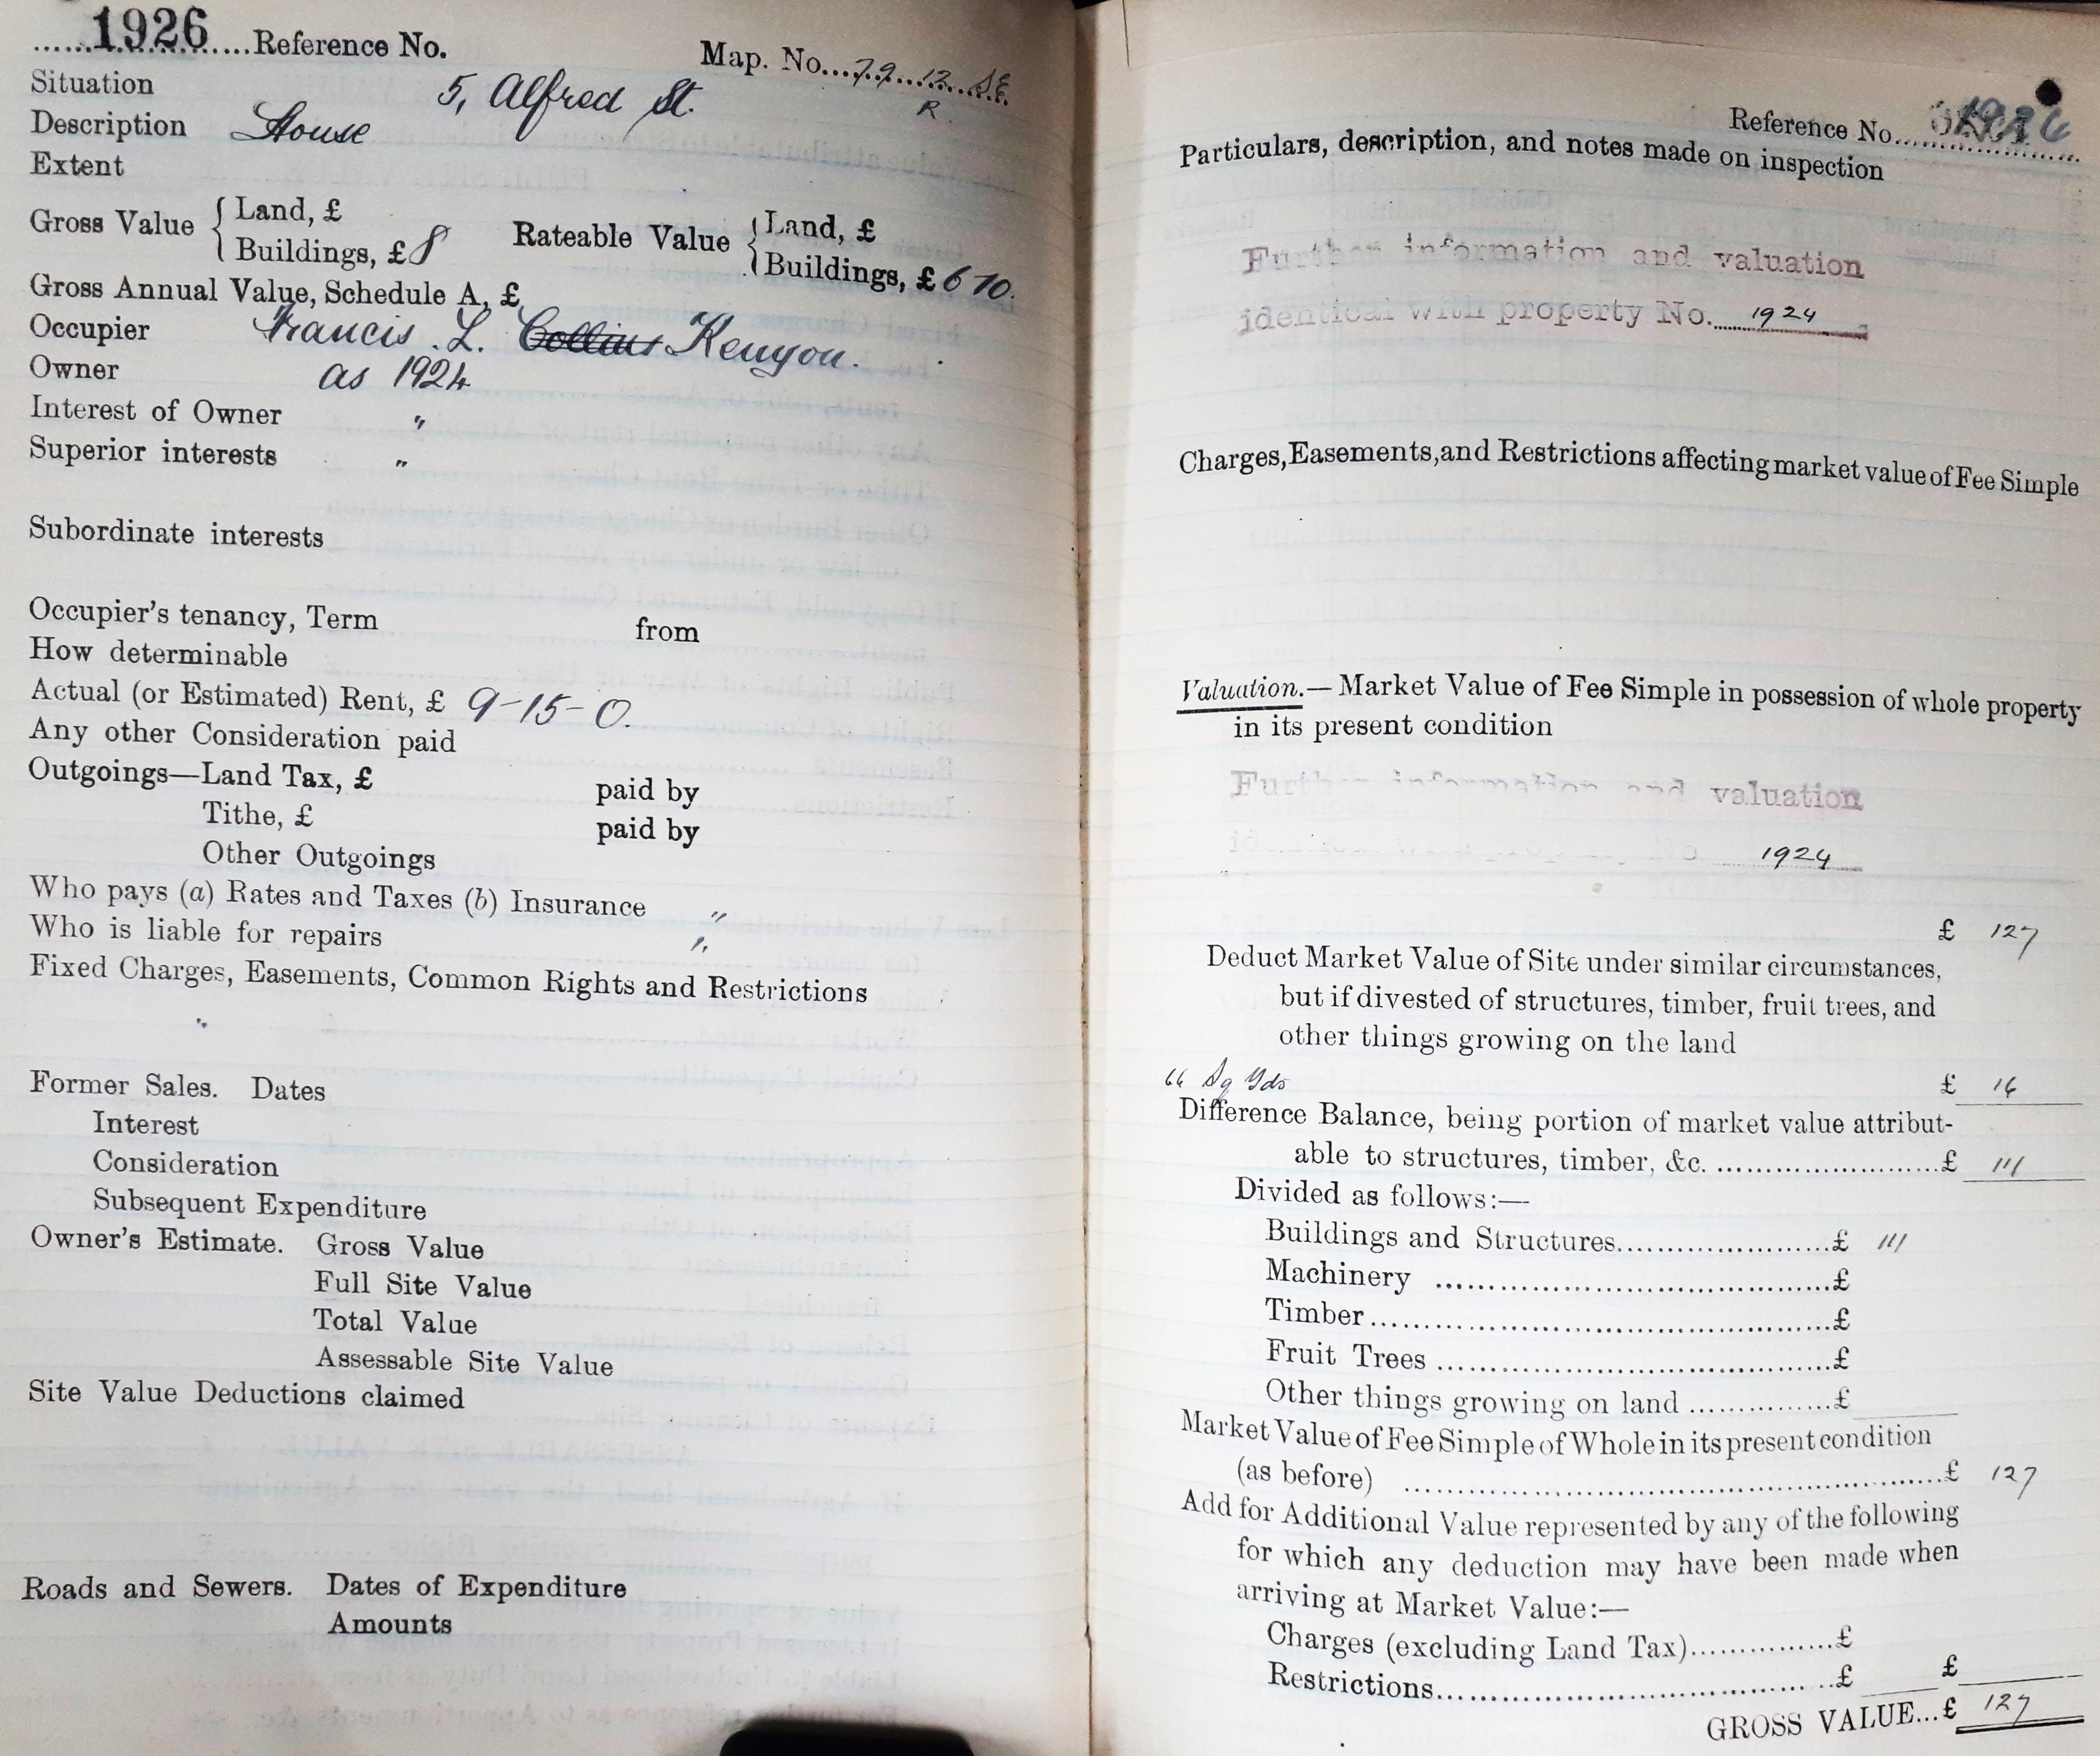 1926 Reference No. Map. No. 79 12 SE
R.
Situation 5, Alfred St.
Description House
Extent
Gross Value { Land, £
Buildings, £ 8
Rateable Value { Land, £
Buildings, £ 6 10.
Gross Annual Value, Schedule A, £
Occupier Francis. L. Collins Kenyon.
Owner as 1924
Interest of Owner "
Superior interests "
Subordinate interests
Occupier's tenancy, Term from
How determinable
Actual (or Estimated) Rent, £ 9-15-0.
Any other Consideration paid
Outgoings—Land Tax, £ paid by
Tithe, £ paid by
Other Outgoings
Who pays (a) Rates and Taxes (b) Insurance "
Who is liable for repairs "
Fixed Charges, Easements, Common Rights and Restrictions
"
Former Sales. Dates
Interest
Consideration
Subsequent Expenditure
Owner's Estimate. Gross Value
Full Site Value
Total Value
Assessable Site Value
Site Value Deductions claimed
Roads and Sewers. Dates of Expenditure
Amounts
Reference No. 1926
Particulars, description, and notes made on inspection
Further information and valuation
identical with property No. 1924
Charges, Easements, and Restrictions affecting market value of Fee Simple
Valuation.— Market Value of Fee Simple in possession of whole property
in its present condition
Further information and valuation
1924
£ 127
Deduct Market Value of Site under similar circumstances,
but if divested of structures, timber, fruit trees, and
other things growing on the land
66 Sq Yds £ 16
Difference Balance, being portion of market value attribut-
able to structures, timber, &c. £ 111
Divided as follows:—
Buildings and Structures £ 111
Machinery £
Timber £
Fruit Trees £
Other things growing on land £
Market Value of Fee Simple of Whole in its present condition
(as before) £ 127
Add for Additional Value represented by any of the following
for which any deduction may have been made when
arriving at Market Value:—
Charges (excluding Land Tax) £
Restrictions £ £
GROSS VALUE... £ 127